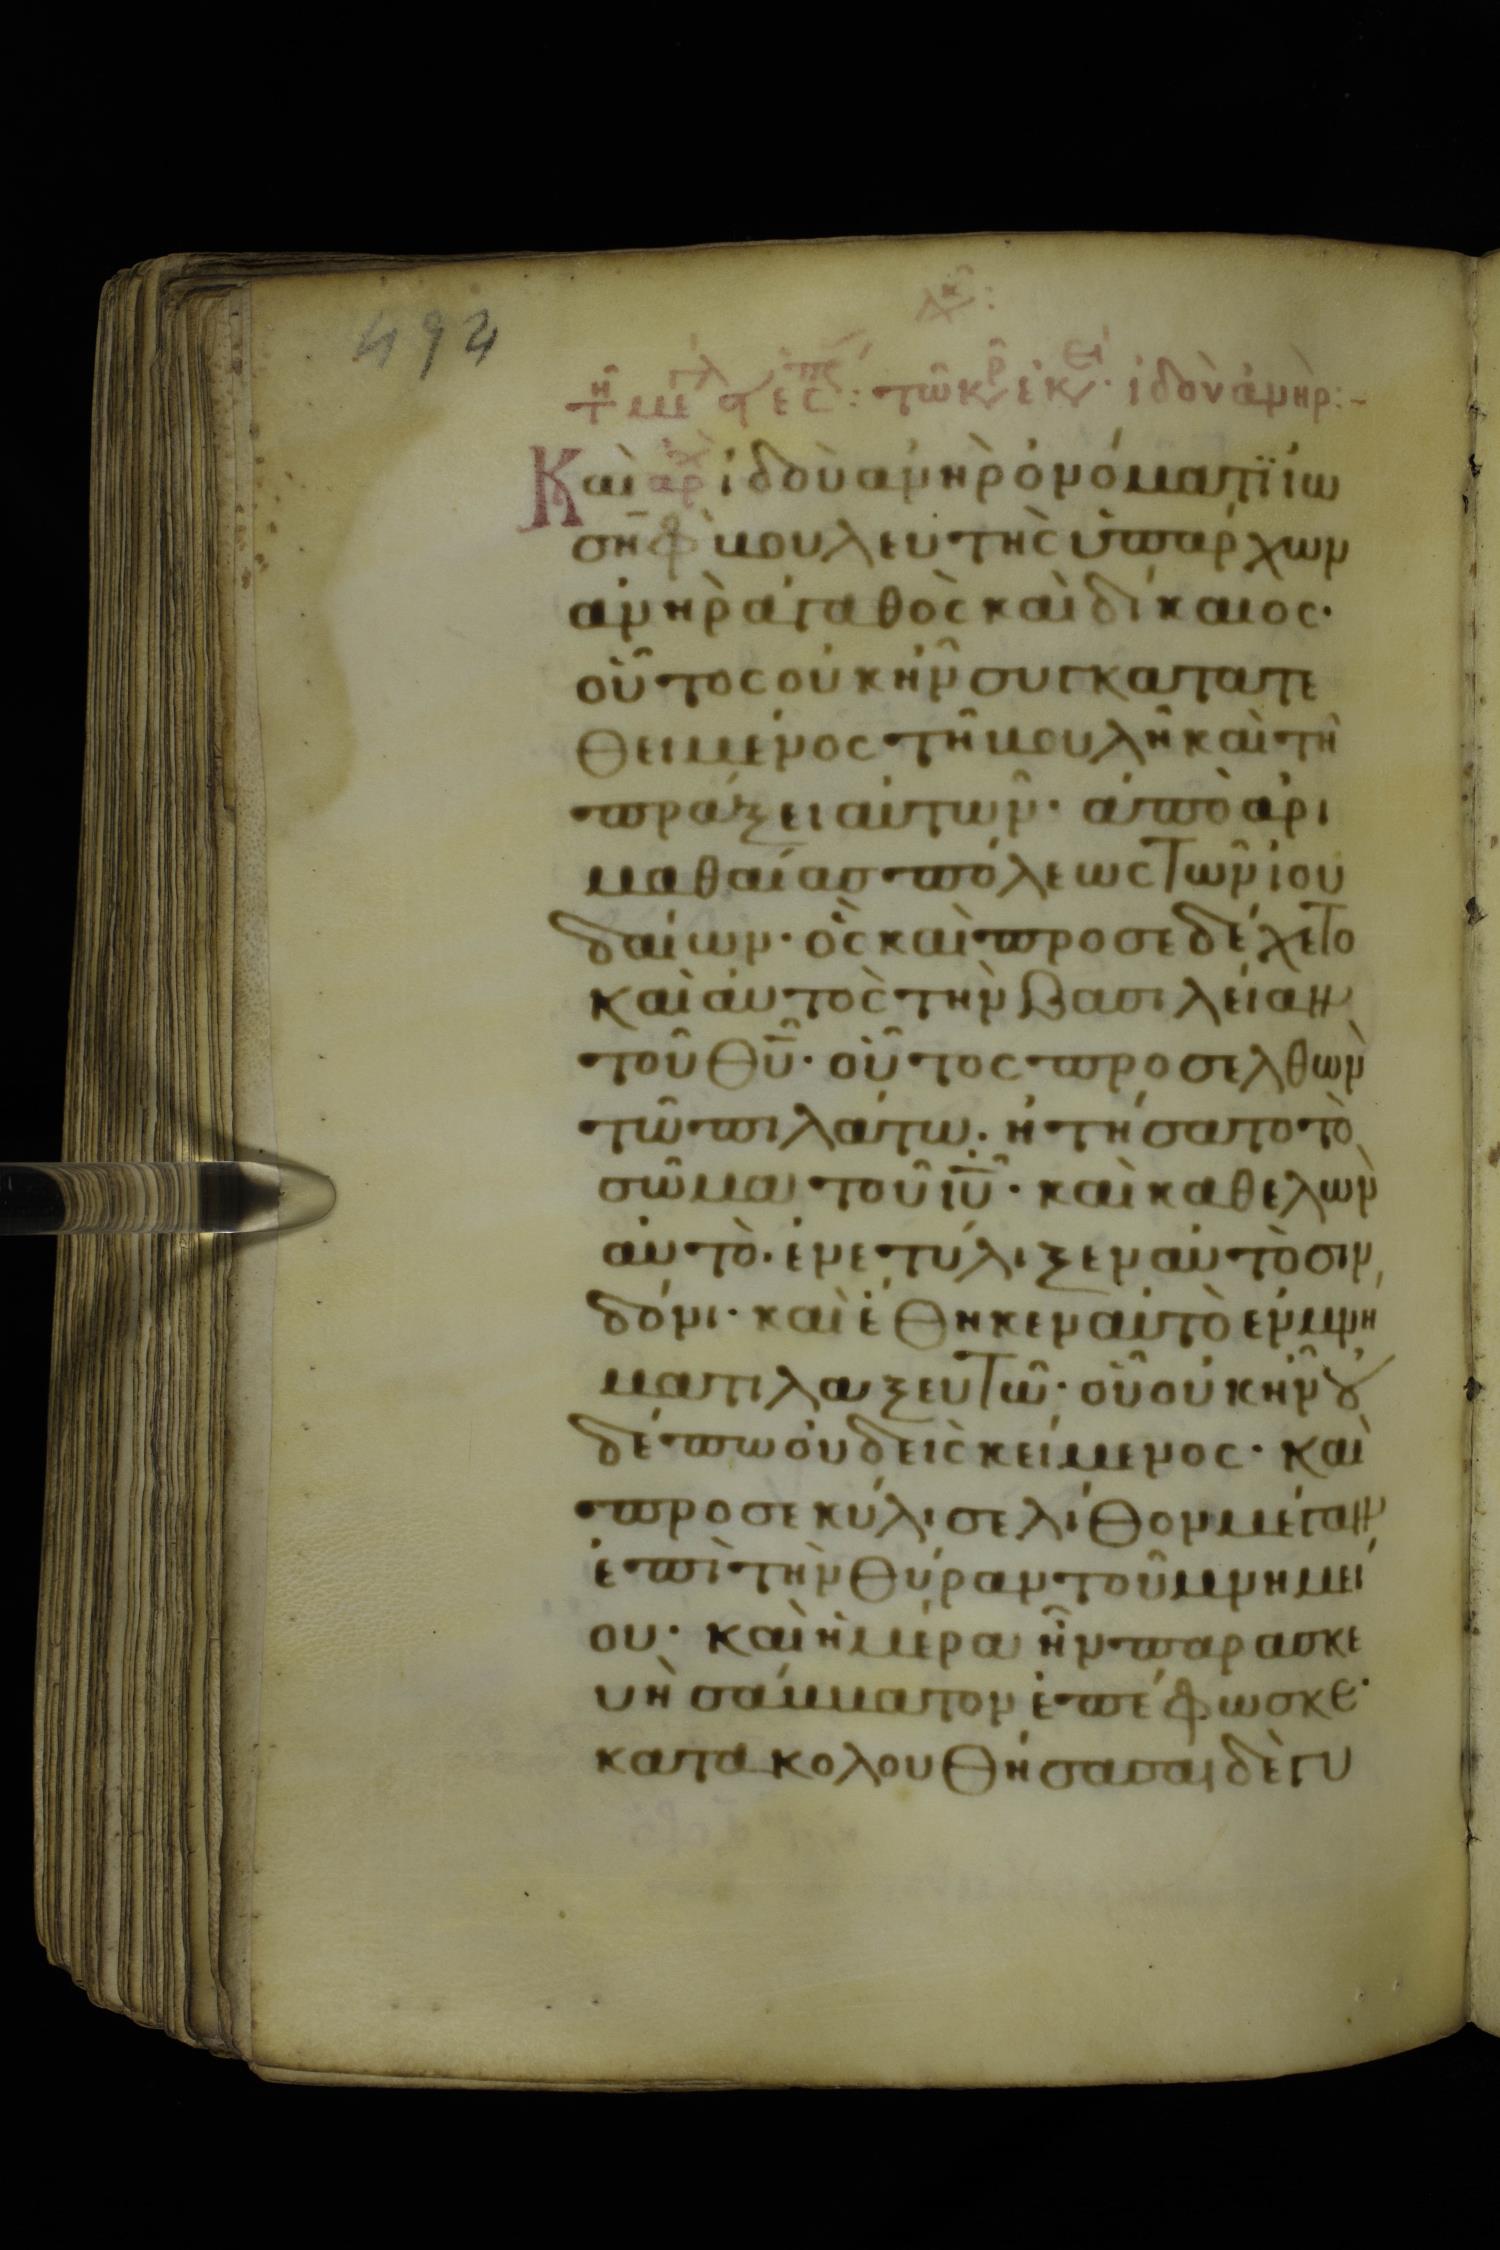 494
τῶ κρ ἐκ ἰδοὺ ἀνὴρ:-
Καὶ ἰδοὺ ἀνὴρ ὀνόματι ϊω
σὴφ βουλευτὴς ὑπάρχων
ἀνὴρ ἀγαθὸς καὶ δίκαιος·
οὗτος οὐκ ἦν συγκατατε
θειμένος τῆ βουλῆ καὶ τῆ
πράξει αὐτῶν· ἀπὸ ἀρι
μαθαίας πόλεως τῶν ἰου
δαίων· ὃς καὶ προσεδέχετο
καὶ αὐτὸς τὴν βασιλείαν
τοῦ θῦ· οὗτος προσελθὼν
τῶ πιλάτω· ἠτήσατο τὸ
σῶμα τοῦ ἰῦ· καὶ καθελὼν
αὐτὸ· ἐνετύλιξεν αὐτὸ σιν
δόνι· καὶ ἔθηκεν αὐτὸ ἐν μνή
ματι λαξευτῶ· οὗ οὐκ ἦν οὐ
δέπω οὐδεὶς κείμενος· καὶ
προσεκύλισε λίθον μέγαν
ἐπὶ τὴν θύραν τοῦ μνημεί
ου· καὶ ἡμέρα ἦν παρασκε
υὴ σάββατον ἐπέφωσκε·
κατακολουθήσασαι δὲ γυ